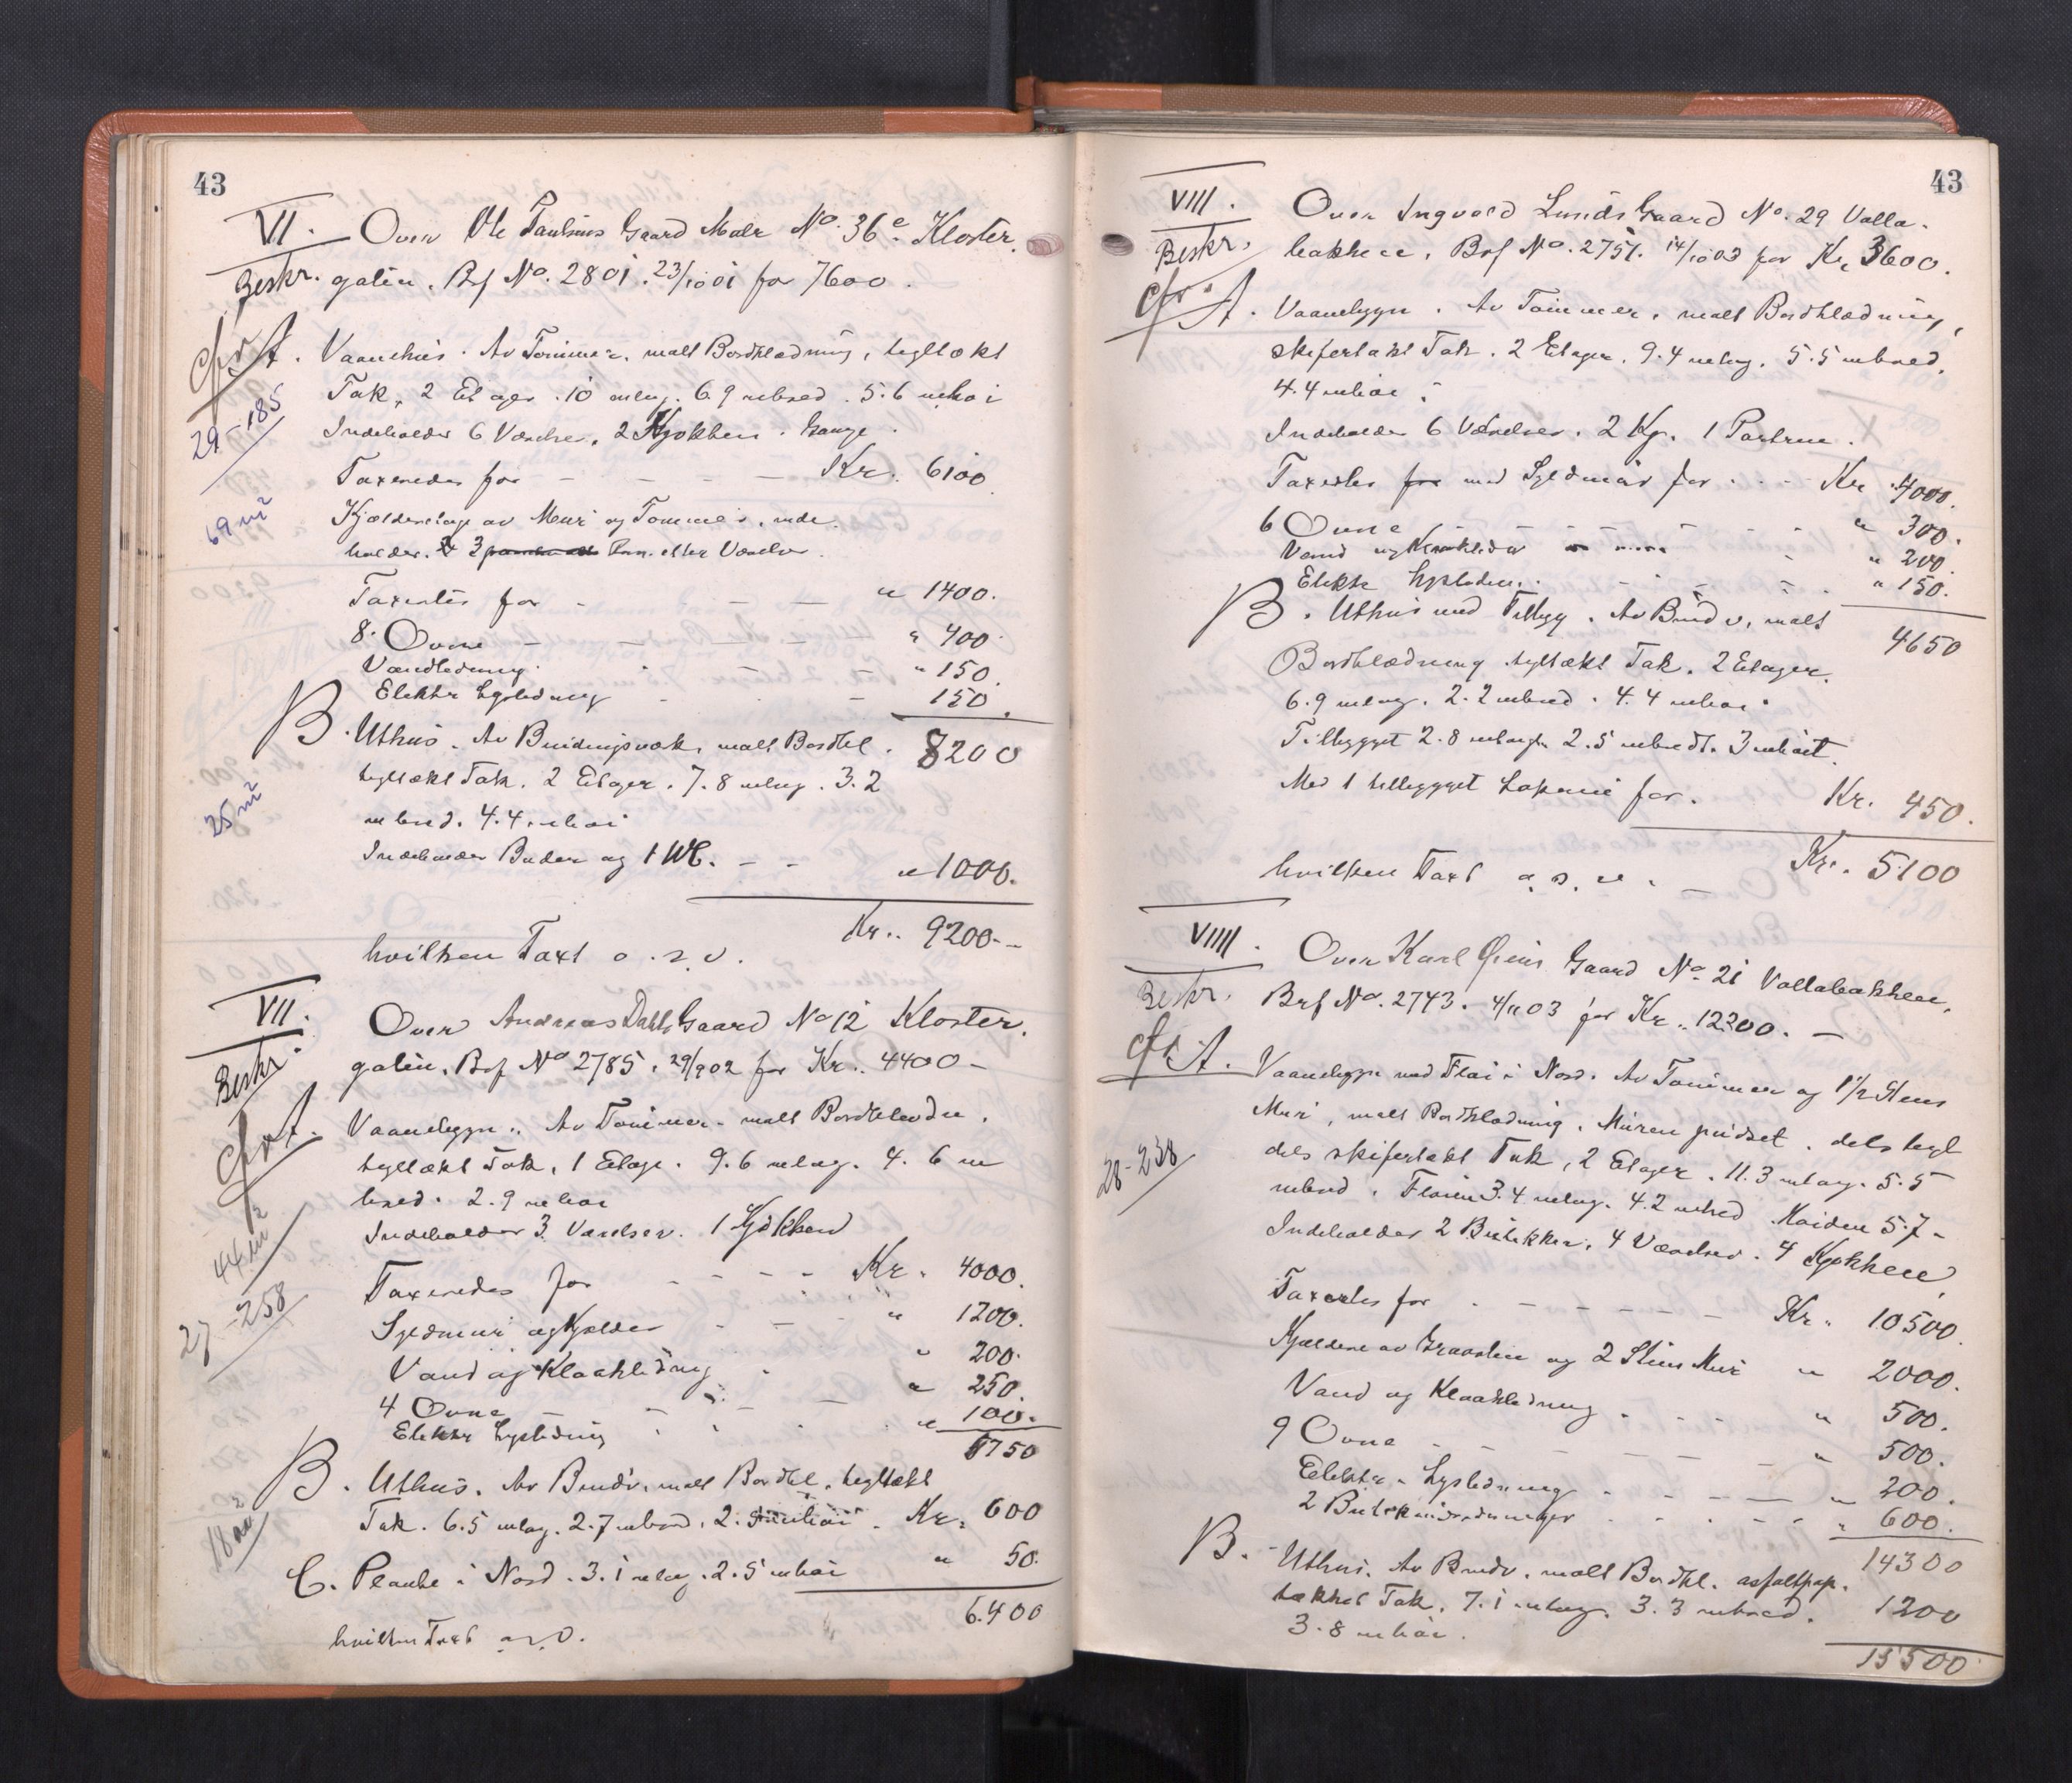 43
VI. Over Ole Paulsens Gaard Matr No. 36e Kloster.
Beskr. gaten. Brf No. 2801. 23/10 01 for 7600.
cfr A. Vaanehus. Av Tømmer, malt Bordklædning, tegltækt
Tak, 2 Etager. 10 m lng. 6.9 m bred. 5.6 m høi
29-185
Indeholder 6 Værelser, 2 Kjøkken. Gange.
Taxeredes for - - - - Kr. 6100
69 m²
Kjælderetage av Mur og Tømmer, inde
holder. 3 Rum eller Værelser.
Taxertes for - - - " 1400.
8 Ovne - - - - " 400
Vandledning - - - " 150.
Elektr Lysledning - - - 150.
B. Uthus. Av Bindingsværk, malt Bordkl. 8200
tegltækt Tak. 2 Etager. 7.8 m lng. 3.2
25 m²
m bred. 4.4 m høi
Indeholder Boder og 1 WC. - - " 1000.
Kr. 9200.-
hvilken Taxt o. s. v.
VII. Over Andreas Dahls Gaard No 12 Kloster.
Beskr. gaten. Brf No 2785. 29/9 02 for Kr. 4400-
cfr A. Vaanebygn. Av Tømmer. malt Bordklædn.
tegltækt Tak, 1 Etage. 9.6 m lng. 4.6 m
bred. 2.9 m høi
Indeholder 3 Værelser. 1 Kjøkken
44 m²
Taxeredes for - - - - Kr. 4000.
27-258
Syldmur og Kjælder - - - " 1200.
Vand og Kloakledning - " 200.
4 Ovne - - - - " 250.
Elektr Lysledning - - - " 100.
5750
B. Uthus. Av Bindv. malt Bordkl. tegltækt
Tak. 6.5 m lng. 2.7 m bred, 2. m høi. Kr. 600
18 m²
C. Planke i Nord. 3.1 m lng. 2.5 m høi " 50.
6.400
hvilken Taxt o.s.v.
43
VIII. Over Ingvald Lunds Gaard No. 29 Volla.
Beskr. bakken. Brf No. 2751. 14/10 03 for Kr. 3600.
cfr A. Vaanebygn. Av Tømmer, malt Bordklædning,
skifertækt Tak. 2 Etager. 9.4 m lng. 5.5 m bred.
4.4 m høi.
Indeholder 6 Værelser. 2 Kj. 1
Taxertes for med Syldmur for - - Kr 4000.
6 Ovne - - - - - " 300.
Vand og Kloakledn - - - " 200.
Elektr Lysledn. - - - - " 150.
B. Uthus med Tilbygg. Av Bindv, malt
4650
Bordklædning tegltækt Tak. 2 Etager.
6.9 m lng. 2.2 m bred. 4.4 m høi.
Tilbygget 2.8 m langt. 2.5 m bredt. 3 m høit.
Med 1 for. Kr. 450.
Kr. 5100
hvilken Taxt o. s. v. -
VIIII. Over Karl Gaard No. 21 Vollabakken,
Beskr. Brf No. 2743. 4/11 03 for Kr. 12200. -
cfr A. Vaanebygn med Fløi i Nord. Av Tømmer og 1½ Stens
Mur, malt Bordklædning. Muren pudset. dels tegl
dels skifertækt Tak, 2 Etager. 11.3 m lng. 5.5
28-238
m bred. Fløien 3.4 m lng. 4.2 m bred Høiden 5.7-
Indeholder 2 Butikker, 4 Værelser. 4 Kjøkken
Taxertes for - - - - - Kr. 10500.
Kjældere av Graasten og 2 Stens Mur " 2000.
Vand og Kloakledning - - - " 500.
9 Ovne - - - - - " 500.
Elektr. Lysledning - - - - " 200.
2 Butikindredninger - - - - " 600.
14300
B. Uthus. Av Bindv. malt Bordkl. asfaltpap.
tækket Tak. 7.1 m lng. 3.3 m bred. 1200
3.8 m høi.
15500